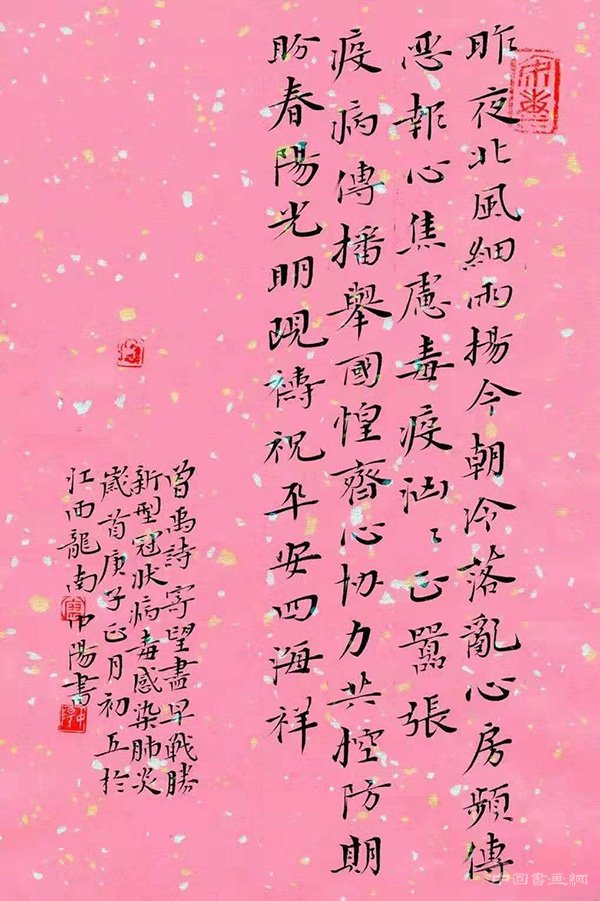 昨夜北風細雨揚今朝冷落亂心房頻傳
惡報心焦慮毒疫汹〻正囂張
疫病傳播舉國惶齊心協力共控防期
盼春陽光明現禱祝平安四海祥
曾禹詩寄望盡早戰勝
新型冠狀病毒感染肺炎
歲首庚子正月初五於
江西龍南中陽書
中国書画網